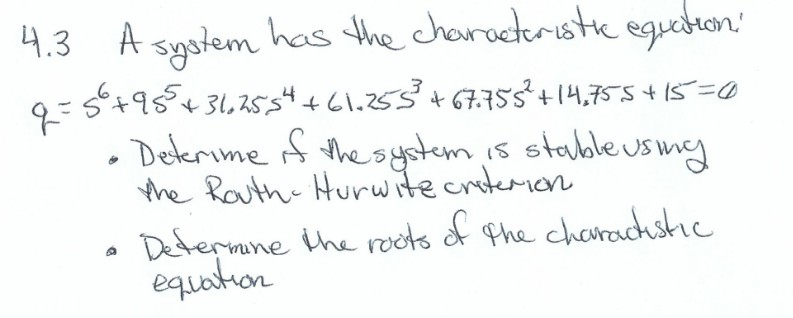 4.3 A system has the characteristic equation:
q = s⁶ + 9s⁵ + 31.25s⁴ + 61.25s³ + 67.75s² + 14.75s + 15 = 0
• Determine if the system is stable using
the Routh-Hurwitz criterion
• Determine the roots of the charactistic
equation